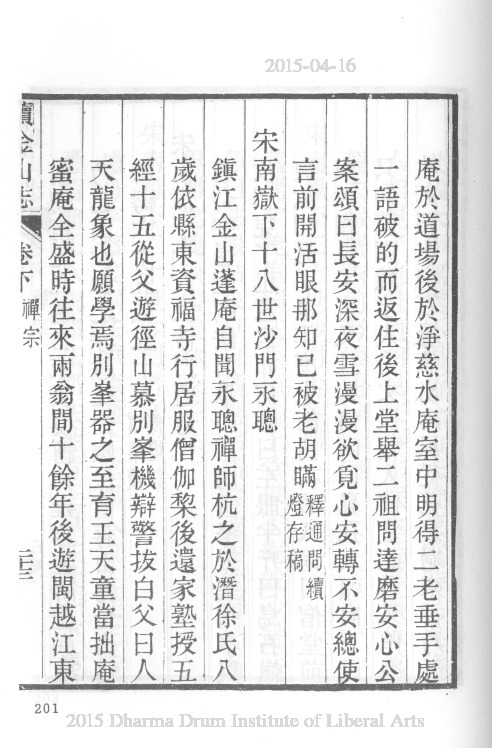 2015-04-16
庵於道場後於淨慈水庵室中明得二老垂手處
一語破的而返住後上堂舉二祖問達磨安心公
案頌曰長安深夜雪漫漫欲覓心安轉不安總使
言前開活眼那知已被老胡瞞釋通問續
燈存稿
宋南嶽下十八世沙門永聰
鎮江金山蓬庵自聞永聰禪師杭之於潛徐氏八
歲依縣東資福寺行居服僧伽黎後還家塾授五
經十五從父遊徑山慕別峯機辯警拔白父曰人
天龍象也願學焉別峯器之至育王天童當拙庵
蜜庵全盛時往來兩翁間十餘年後遊閩越江東
續金山志
卷下
禪宗
201
2015 Dharma Drum Institute of Liberal Arts